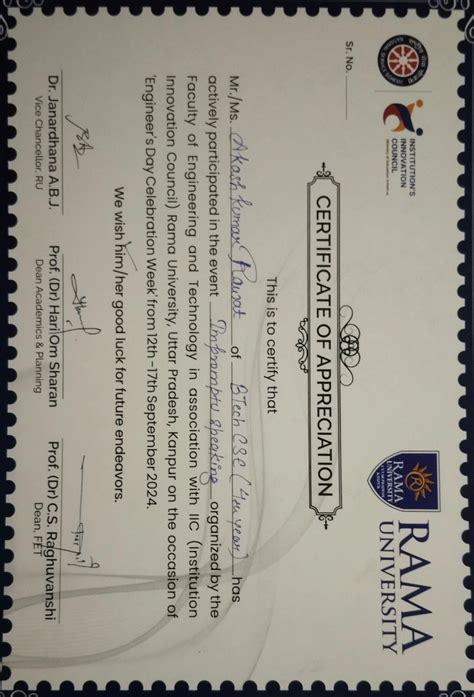 INSTITUTION'S
INNOVATION
COUNCIL
RAMA
UNIVERSITY
RAMA
UNIVERSITY
Sr. No.
CERTIFICATE OF APPRECIATION
This is to certify that
Mr./Ms. Akash Kumar Rawat of BTech CSE (4th year) has
actively participated in the event Impromptu Speaking organized by the
Faculty of Engineering and Technology in association with IIC (Institution
Innovation Council) Rama University, Uttar Pradesh, Kanpur on the occasion of
'Engineer's Day Celebration Week' from 12th -17th September 2024.
We wish him/her good luck for future endeavors.
Dr. Janardhana A.B.J.
Vice Chancellor, RU
Prof. (Dr) Hari Om Sharan
Dean Academics & Planning
Prof. (Dr) C.S. Raghuvanshi
Dean, FET